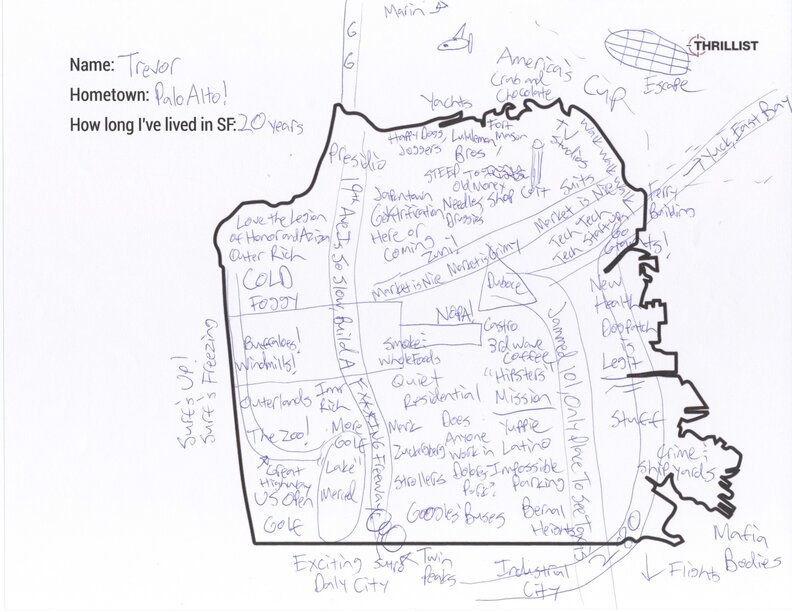 Marin
G
G
THRILLIST
Name: Trevor
Hometown: Palo Alto!
How long I've lived in SF: 20 years
America's
Crab and
Chocolate
Cup
Escape
Yachts
Yuck, East Bay
Presidio
Happy Dogs,
Joggers
Lululemon
Bros!
Fort
Mason
TV
Studios
STEEP TO
Old Money
Japantown
Gentrification
Here or
Coming
Needles Shop
Druggies
Coit
Suits
Ferry
Building
Market is Nice
Tech Tech
Tech Startups
Go
Giants!
Love the Legion
of Honor and Aziza
Outer Rich
COLD
FOGGY
19th Ave Is So Slow, Build A
F***ING Freeway
Zuni!
Market is Nice Market is Grimy
Duboce
New
Health
Dogpatch
is
Legit
NOPA!
Buffaloes!
Windmills!
Smoke:
Whole Foods
Castro
3rd Wave
Coffee
"Hipsters"
Mission
Yuppie
Latino
Impossible
Parking
Bernal
Heights
Jammed 101, Only Place To See
Surf's Up!
Surf's Freezing
Quiet
Residential
Outerlands
Inner
Rich
The Zoo!
More
Golf
"Lake"
Merced
Great
Highway
US Open
Golf
Mark
Zuckerberg
Strollers
Does
Anyone
Work in
Park?
Google Buses
Stuff
Crime:
Shipyards
280
Mafia
Bodies
Exciting
Daly City
Sutro
Twin
Peaks
Industrial
City
Flights